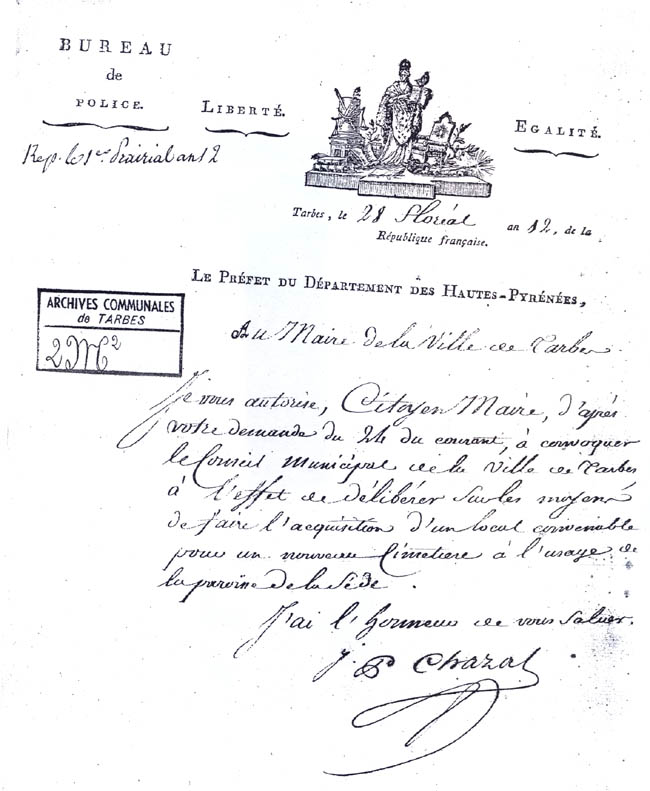 BUREAU
de
POLICE.
LIBERTÉ.
EGALITÉ.
Rep. le 1er Prairial an 12
Tarbes, le 28 Floréal an 12, de la
République française.
LE PRÉFET DU DÉPARTEMENT DES HAUTES-PYRÉNÉES,
ARCHIVES COMMUNALES
de TARBES
2M²
Au Maire de la Ville de Tarbes
Je vous autorise, Citoyen Maire, d'après
votre demande du 24 du courant, à convoquer
le Conseil Municipal de la Ville de Tarbes
à l'effet de délibérer sur les moyens
de faire l'acquisition d'un local convenable
pour un nouveau Cimetiere à l'usage de
la paroisse de la Sède.
J'ai l'honneur de vous saluer.
J P Chazal